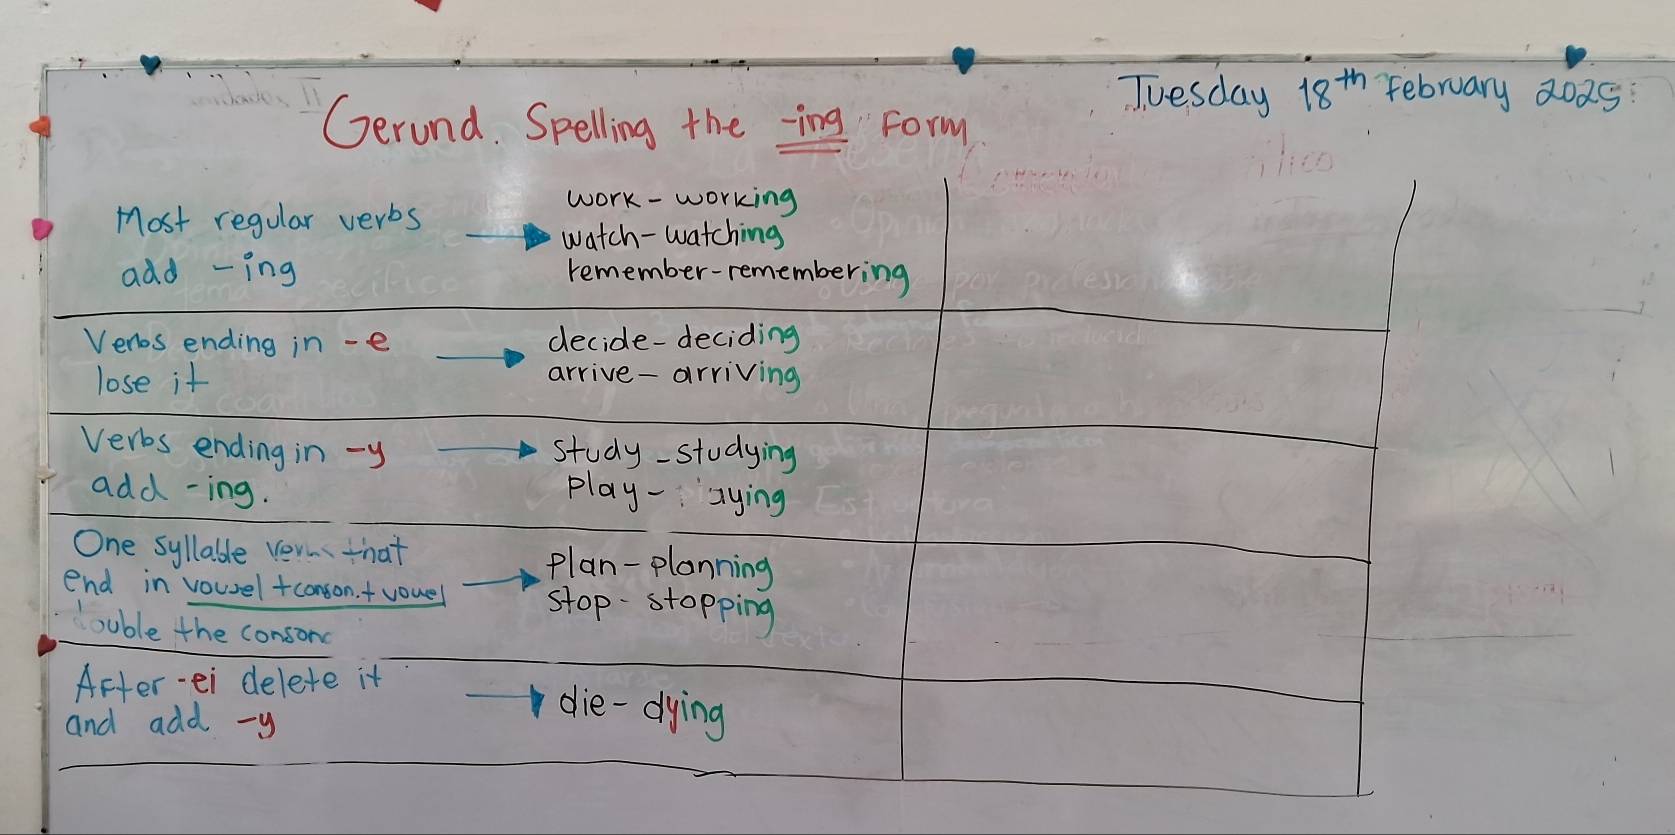 Tuesday 18th February 2025
Gerund. Spelling the -ing Form
Most regular verbs
add -ing
work - working
watch - watching
remember - remembering
Verbs ending in -e
lose it
decide - deciding
arrive - arriving
Verbs ending in -y
add -ing.
study - studying
play - aying
One syllable that
end in vowel + conson. + vowel
double the conson
plan - planning
stop - stopping
After -ei delete it
and add -y
die - dying